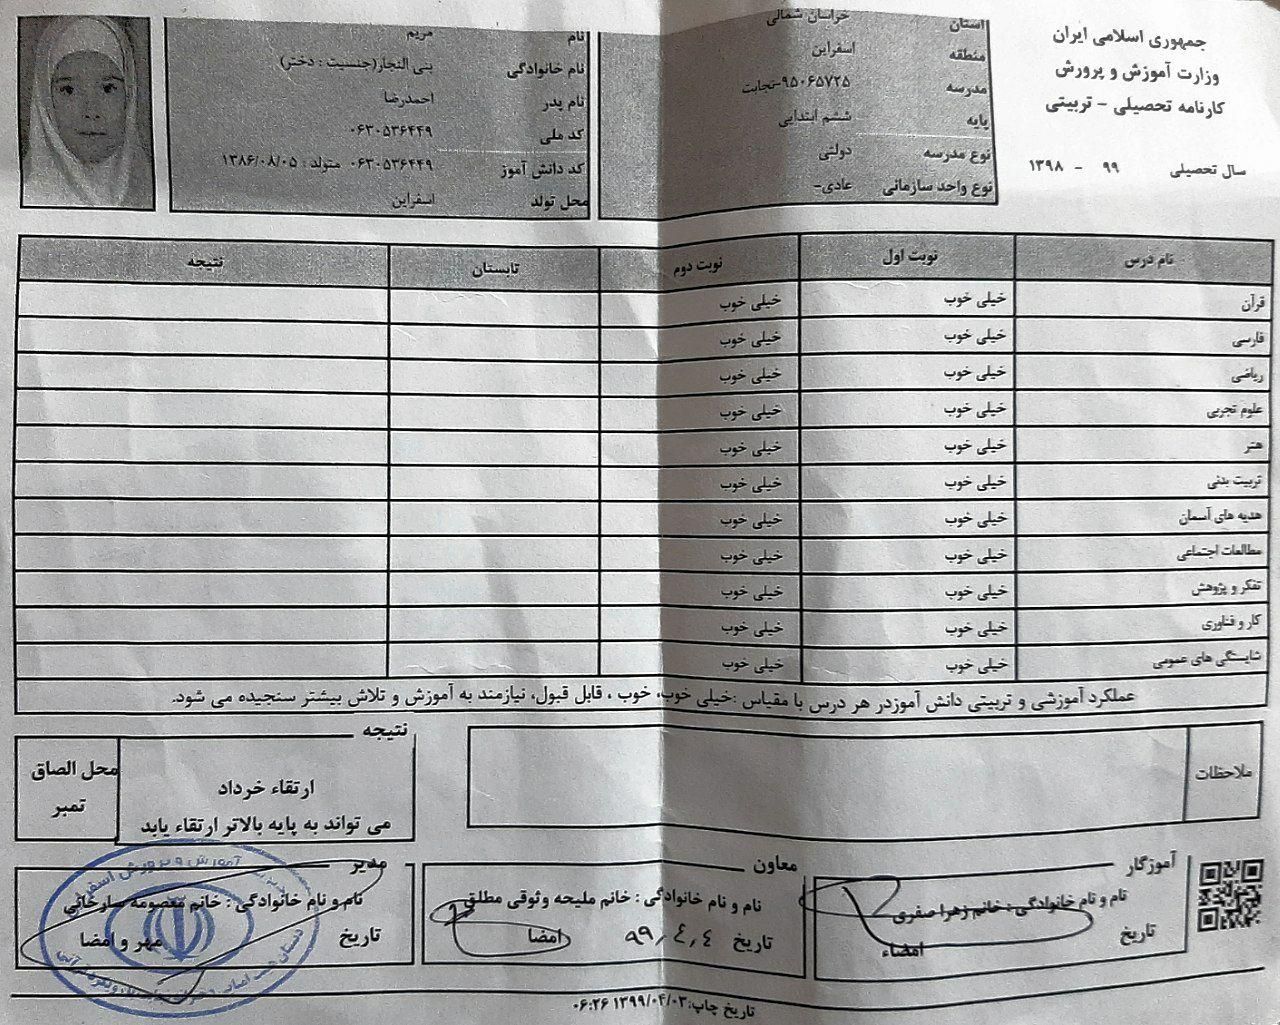 جمهوری اسلامی ایران
وزارت آموزش و پرورش
کارنامه تحصیلی - تربیتی
سال تحصیلی ۹۹ - ۱۳۹۸
استان خراسان شمالی
منطقه اسفراین
مدرسه ۹۵۰۶۵۷۲۵-نجابت
پایه ششم ابتدایی
نوع مدرسه دولتی
نوع واحد سازمانی عادی-
نام مریم
نام خانوادگی بنی النجار(جنسیت : دختر)
نام پدر احمدرضا
کد ملی ۰۶۳۰۵۳۶۴۴۹
کد دانش آموز ۰۶۳۰۵۳۶۴۴۹ متولد : ۱۳۸۶/۰۸/۰۵
محل تولد اسفراین
نام درس نوبت اول نوبت دوم تابستان نتیجه
قرآن خیلی خوب خیلی خوب
فارسی خیلی خوب خیلی خوب
ریاضی خیلی خوب خیلی خوب
علوم تجربی خیلی خوب خیلی خوب
هنر خیلی خوب خیلی خوب
تربیت بدنی خیلی خوب خیلی خوب
هدیه های آسمان خیلی خوب خیلی خوب
مطالعات اجتماعی خیلی خوب خیلی خوب
تفکر و پژوهش خیلی خوب خیلی خوب
کار و فناوری خیلی خوب خیلی خوب
شایستگی های عمومی خیلی خوب خیلی خوب
عملکرد آموزشی و تربیتی دانش آموزدر هر درس با مقیاس :خیلی خوب، خوب ، قابل قبول، نیازمند به آموزش و تلاش بیشتر سنجیده می شود.
ملاحظات
نتیجه
ارتقاء خرداد
می تواند به پایه بالاتر ارتقاء یابد
محل الصاق
تمبر
آموزگار
نام و نام خانوادگی : خانم زهرا صفری
تاریخ امضاء
معاون
نام و نام خانوادگی : خانم ملیحه وثوقی مطلق
تاریخ ۹۹,۴,۴ امضا
مدیر
نام و نام خانوادگی : خانم معصومه سارخانی
تاریخ مهر و امضا
آموزش و پرورش اسفراین
تاریخ چاپ:۱۳۹۹/۰۴/۰۳ ۰۶:۲۶